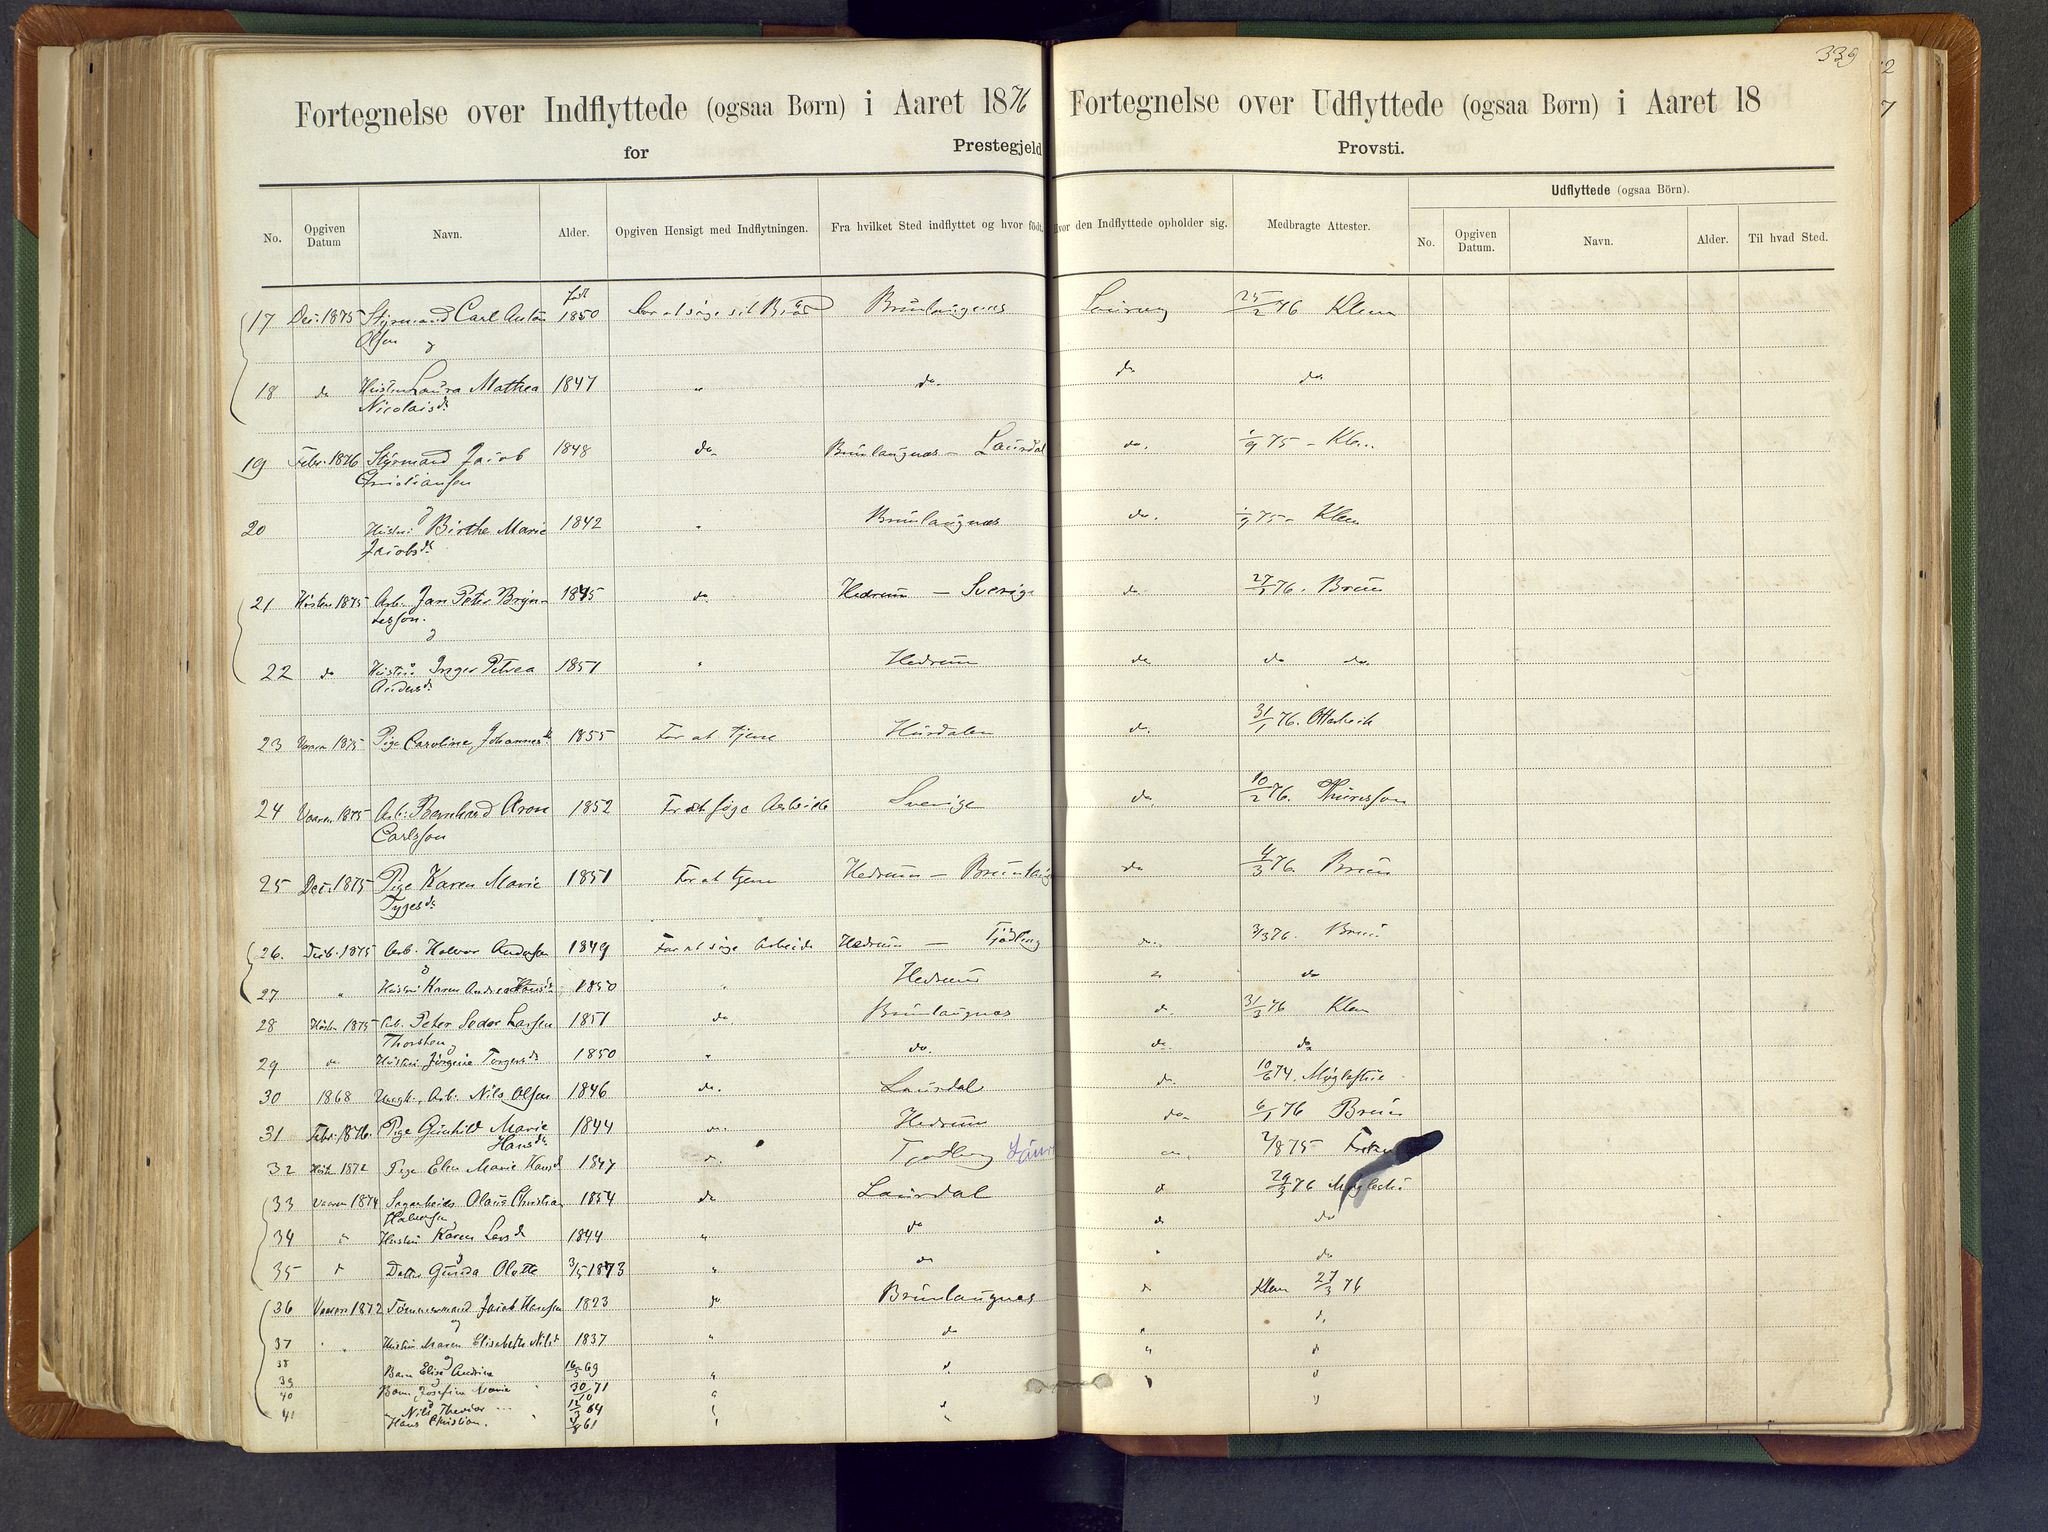 339
Fortegnelse over Indflyttede (ogsaa Børn) i Aaret 1876
Fortegnelse over Udflyttede (ogsaa Børn) i Aaret 18
for Prestegjeld
Provsti.
No. Opgiven Datum Navn. Alder. Opgiven Hensigt med Indflytningen. Fra hvilket Sted indflyttet og hvor født. Hvor den Indflyttede opholder sig. Medbragte Attester.
Udflyttede (ogsaa Börn).
No. Opgiven Datum. Navn. Alder. Til hvad Sted.
17 Dec. 1875 Styrmand Carl Anton født 1850 Brunlaugnæs Laurvig 25/2 76 Klem
Olsen
18 do Hustru Laura Mathea 1847 " do. do do.
Nicolaisd.
19 Febr. 1876 Styrmand Jacob 1848 do Brunlaugnæs – Laurdal do. 75 – Klem
Christiansen
20 Hustru Birthe Marie 1842 " Brunlaugnæs do. 75 – Klem
Jacobsd.
21 Høsten 1875 Arb. Jan Peter Bryn- 1845 do. Hedrum – Sverige do. 27/ 76. Bruun
tesson.
22 do Hustru Inger Petrea 1851 " Hedrum do do do.
Andersd.
23 Vaaren 1875 Pige Caroline Johannesd. 1855 For at tjene Hurdalen do. 31/1 76.
24 Vaaren 1875 Arb: Bernhard Aron 1852 For at søge Arbeide Sverige do. 10/2 76. Thuresson
Carlsson
25 Dec. 1875 Pige Karen Marie 1851 For at tjene Hedrum – Brunlaug do 4/3 76. Bruun
Tygesd.
26. Decb. 1875 Arb. Halvor Andersen 1849 For at søge Arbeide Hedrum – Tjödling do. 3/3 76. Bruun
27 " Hustru Karen Andrea Hansd. 1850 " Hedrum " do
28 Høsten 1875 Arb. Peter Sedor Larsen 1851 do. Brunlaugnæs d. 31/3 76 Klem
Thorsten
29 do Hustru Jørgine Torgersd. 1850 " do. do do
30 1868 Ungk. Arb. Nils Olsen 1846 do. Laurdal d. 10/6 74. Møglestue
31 Febr. 1876. Pige Gunhild Marie 1844 Hedrum do 6/1 76 Bruun
Hansd.
32 Høsten 1872 Pige Elen Marie Hansd 1847 d. Tjødling 2/8 75
33 Vaaren 1874 Sagarbeider Olaus Christian 1854 do Laurdal d 29/3 76 Møglestu
Halvorsen
34 " Hustru Karen Larsd. 1844 " do d do
35 d Datter Gunda Olette 3/5 1873 " do " do
36 Vaaren 1872 Tømmermand Jacob Hansen 1823 do Brunlaugnæs d Klem 27/3 76
37 " Hustru Maren Elisabeth Nilsd 1837 " do " d.
38 Barn Elise Andrine 16/5 69 " d. " d
39 Barn Josefine Marie 30/10 71 "
40 Nils Theodor 12/3 64
41 Hans Christian. 4/8 61